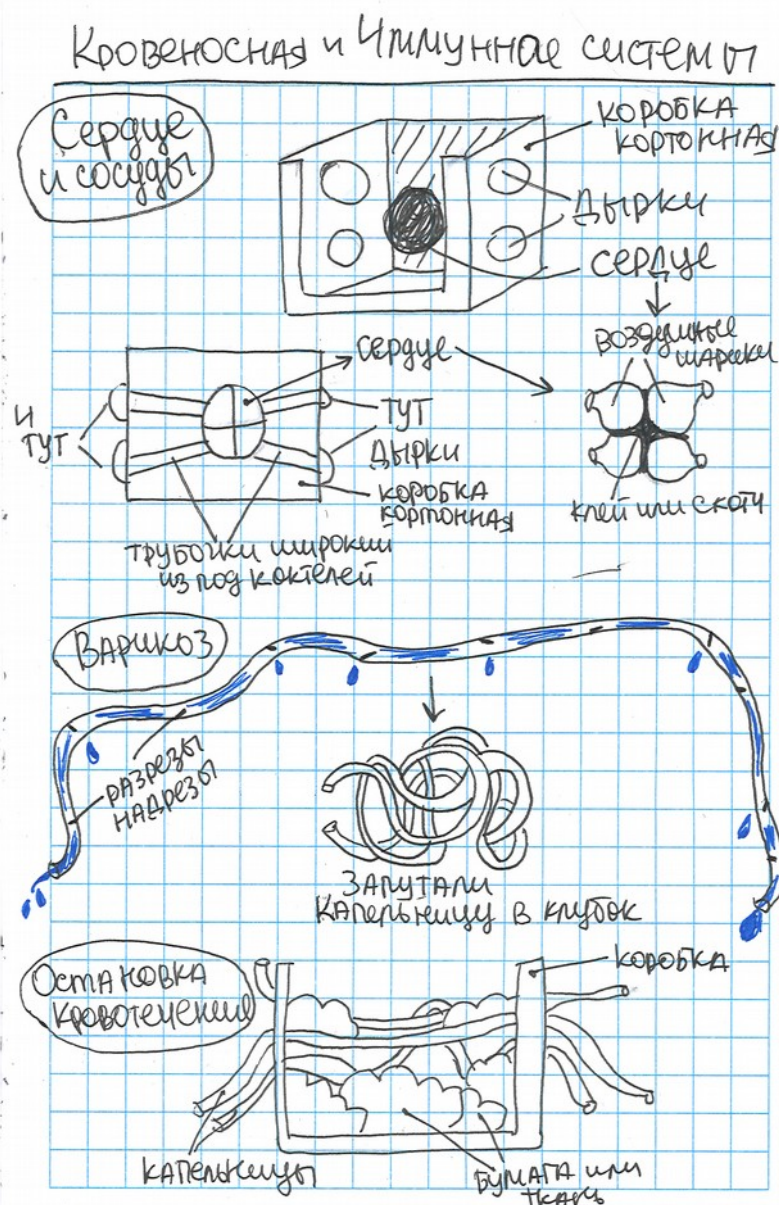 Кровеносная и Иммунная системы
Сердце
и сосуды
коробка
кортонная
дырки
сердце
воздушные
шарики
сердце
и
тут
тут
дырки
коробка
кортонная
клей или скотч
трубочки широкии
из под коктелей
Варикоз
разрезы
надрезы
запутали
капельницу в клубок
Остановка
кровотечения
коробка
капельницы
бумага или
ткань